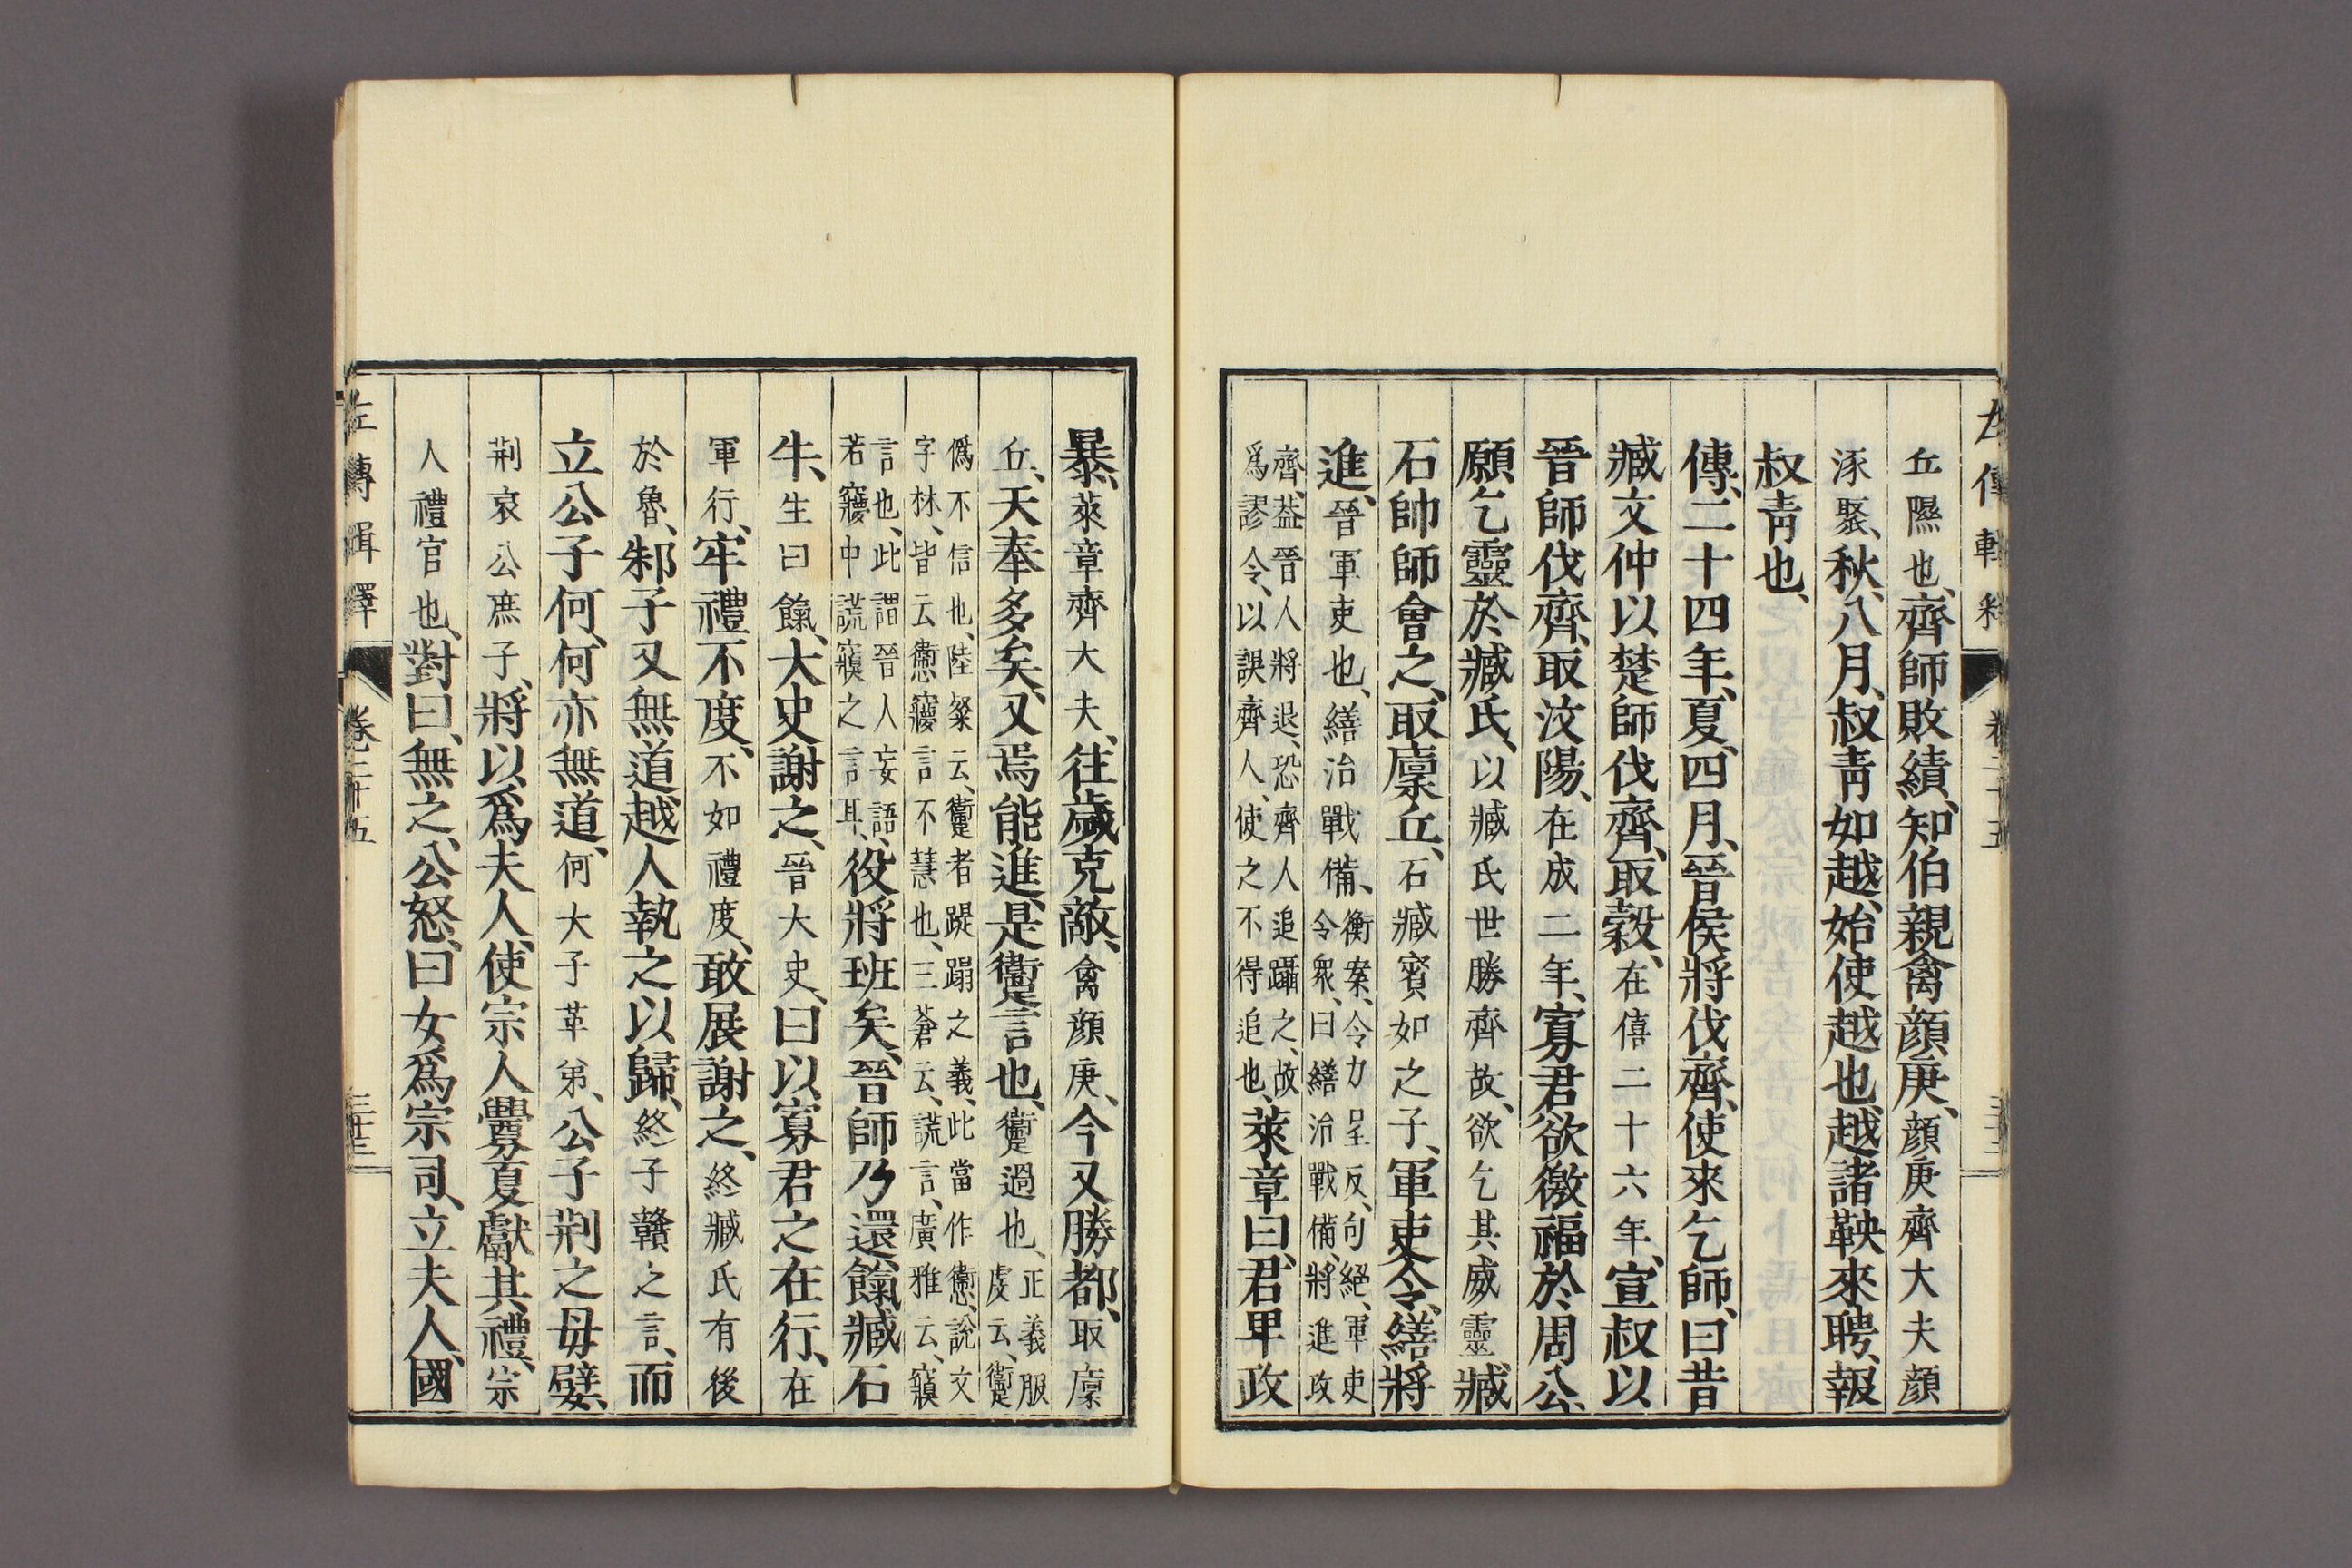 左傳輯釋 卷二十五
丘隰也、齊師敗績、知伯親禽顏庚、顏庚齊大夫顏
涿聚、秋、八月、叔青如越、始使越也、越諸鞅來聘、報
叔青也、
傳、二十四年、夏、四月、晉侯將伐齊、使來乞師、曰昔
臧文仲以楚師伐齊、取穀、在僖二十六年、宣叔以
晉師伐齊、取汶陽、在成二年、寡君欲徼福於周公、
願乞靈於臧氏、以臧氏世勝齊故、欲乞其威靈臧
石帥師會之、取廩丘、石臧賓如之子、軍吏令、繕將
進、晉軍吏也、繕治戰備、衡案、令力呈反、句絕、軍吏
令衆、曰繕治戰備、將進攻
齊、葢晉人將退、恐齊人追躡之、故
爲謬令、以誤齊人、使之不得追也、萊章曰、君卑政
暴、萊章齊大夫、往歲克敵、禽顏庚、今又勝都、取廩
丘、天奉多矣、又焉能進、是躗言也、躗過也、正義服
虔云、躗
僞不信也、陸粲云、躗者踶蹋之義、此當作𢥠、說文
字林、皆云𢥠寱言不慧也、三蒼云、謊言、廣雅云、寱
言也、此謂晉人妄語、
若寱中謊寱之言耳、役將班矣、晉師乃還、餼臧石
牛、生曰餼、大史謝之、晉大史、曰以寡君之在行、在
軍行、牢禮不度、不如禮度、敢展謝之、終臧氏有後
於魯、邾子又無道、越人執之以歸、終子贛之言、而
立公子何、何亦無道、何大子革弟、公子荆之母嬖、
荆哀公庶子、將以爲夫人、使宗人釁夏獻其禮、宗
人禮官也、對曰、無之、公怒、曰女爲宗司、立夫人、國
左傳輯釋 卷二十五 三十三